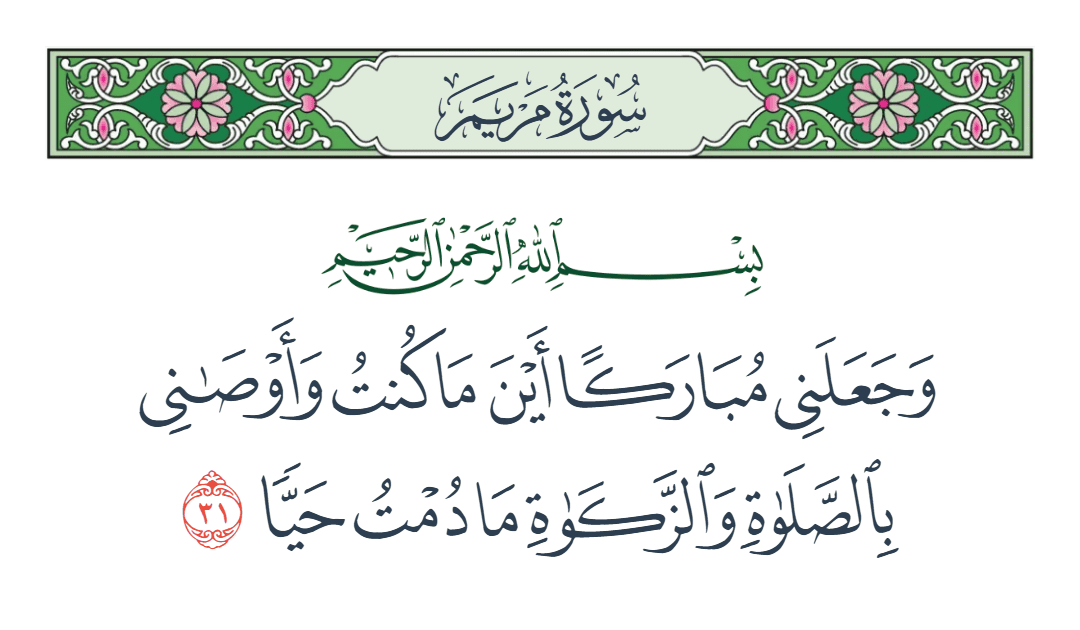 سُورَةُ مَرْيَمَ
بِسْمِ ٱللَّهِ ٱلرَّحْمَٰنِ ٱلرَّحِيمِ
وَجَعَلَنِى مُبَارَكًا أَيْنَ مَا كُنتُ وَأَوْصَٰنِى
بِٱلصَّلَوٰةِ وَٱلزَّكَوٰةِ مَا دُمْتُ حَيًّا ٣١